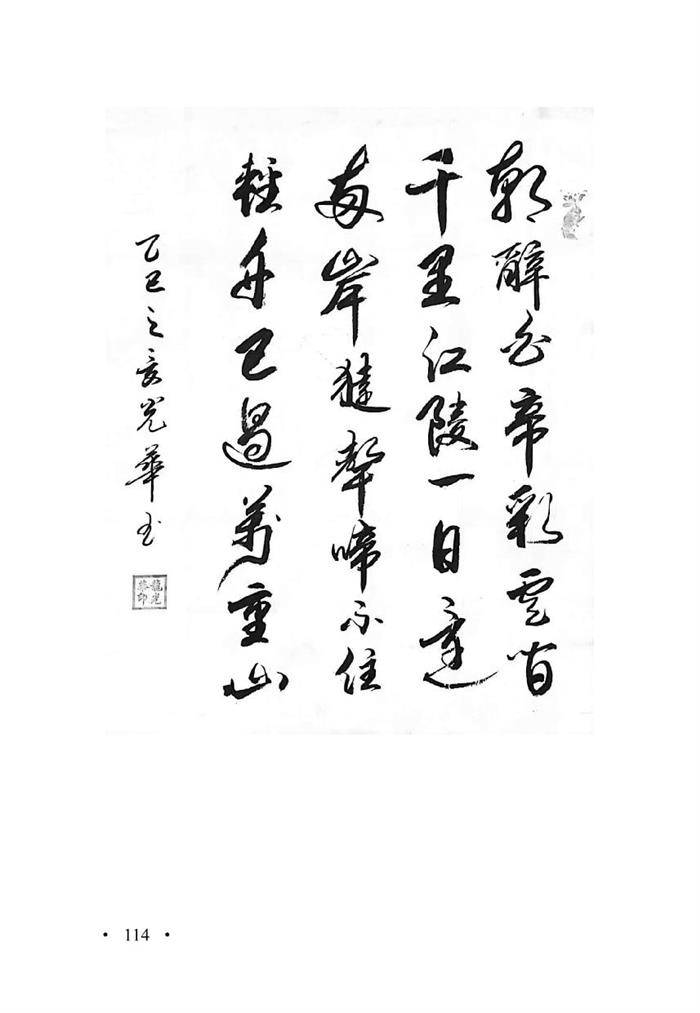 朝辭白帝彩雲間
千里江陵一日還
兩岸猿聲啼不住
輕舟已過萬重山
乙巳之夏光華書
龍光華印
• 114 •